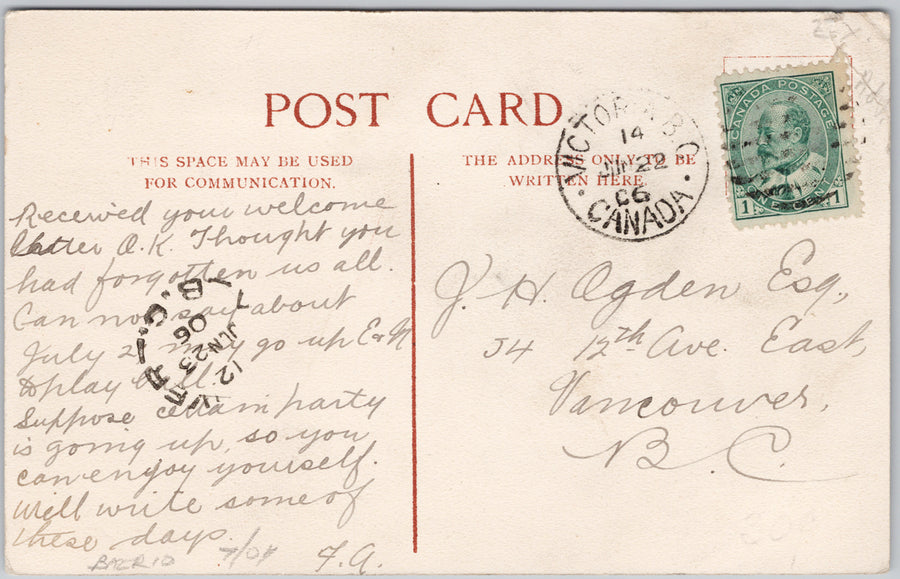 POST CARD
THIS SPACE MAY BE USED
FOR COMMUNICATION.
THE ADDRESS ONLY TO BE
WRITTEN HERE
VICTORIA B.C.
14
JUN 22
06
CANADA
CANADA POSTAGE
1 ONE CENT 1
Received your welcome
letter O.K. Thought you
had forgotten us all.
Can not say about
July 2 may go up E & N
to play ball.
Suppose certain party
is going up, so you
can enjoy yourself.
Will write some of
these days.
F.A.
VER B.C.
12
JUN 23
06
J. H. Ogden Esq.,
54 12th Ave. East,
Vancouver,
B.C.
7/01